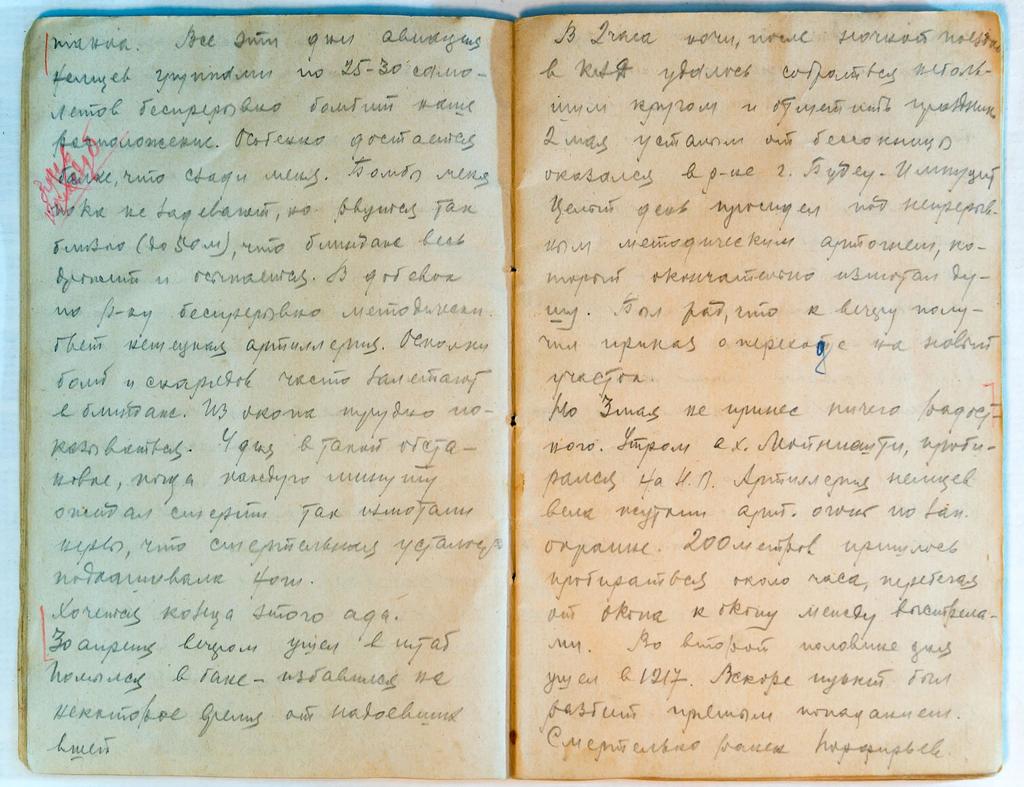 танка. Все эти дни авиация
немцев группами по 25-30 само-
летов беспрерывно бомбит наше
расположение. Особенно достается
балке, что сзади меня. Бомбы меня
пока не задевают, но рвутся так
близко (до 50 м), что блиндаж весь
дрожит и осыпается. В добавок
по р-ну беспрерывно методически
бьет немецкая артиллерия. Осколки
бомб и снарядов часто залетают
в блиндаж. Из окопа трудно по-
казываться. 4 дня в такой обста-
новке, когда каждую минуту
ожидал смерти так измотали
нервы, что смертельная усталость
подкашивала ноги.
Хочется конца этого ада.
30 апреля вечером ушел в штаб
Помылся в бане - избавился на
некоторое время от надоевших
вшей
В 2 часа ночи, после ночной поездки
в КАД удалось собраться неболь-
шим кругом и отметить праздник
2 мая усталым от бессонницы
оказался в р-не г.
Целый день просидел под непрерыв-
ным методическим артогнем, ко-
торый окончательно измотал ду-
шу. Был рад, что к вечеру полу-
чил приказ о переходе на новый
участок.
Но 3 мая не принес ничего радост-
ного. Утром в х. проби-
рался на Н.П. Артиллерия немцев
вела арт. огонь по зап.
окраине. 200 метров пришлось
пробираться около часа, перебегая
от окопа к окопу между выстрела-
ми. Во второй половине дня
ушел в 1217. Вскоре пункт был
разбит прямым попаданием.
Смертельно ранен Порфирьев.